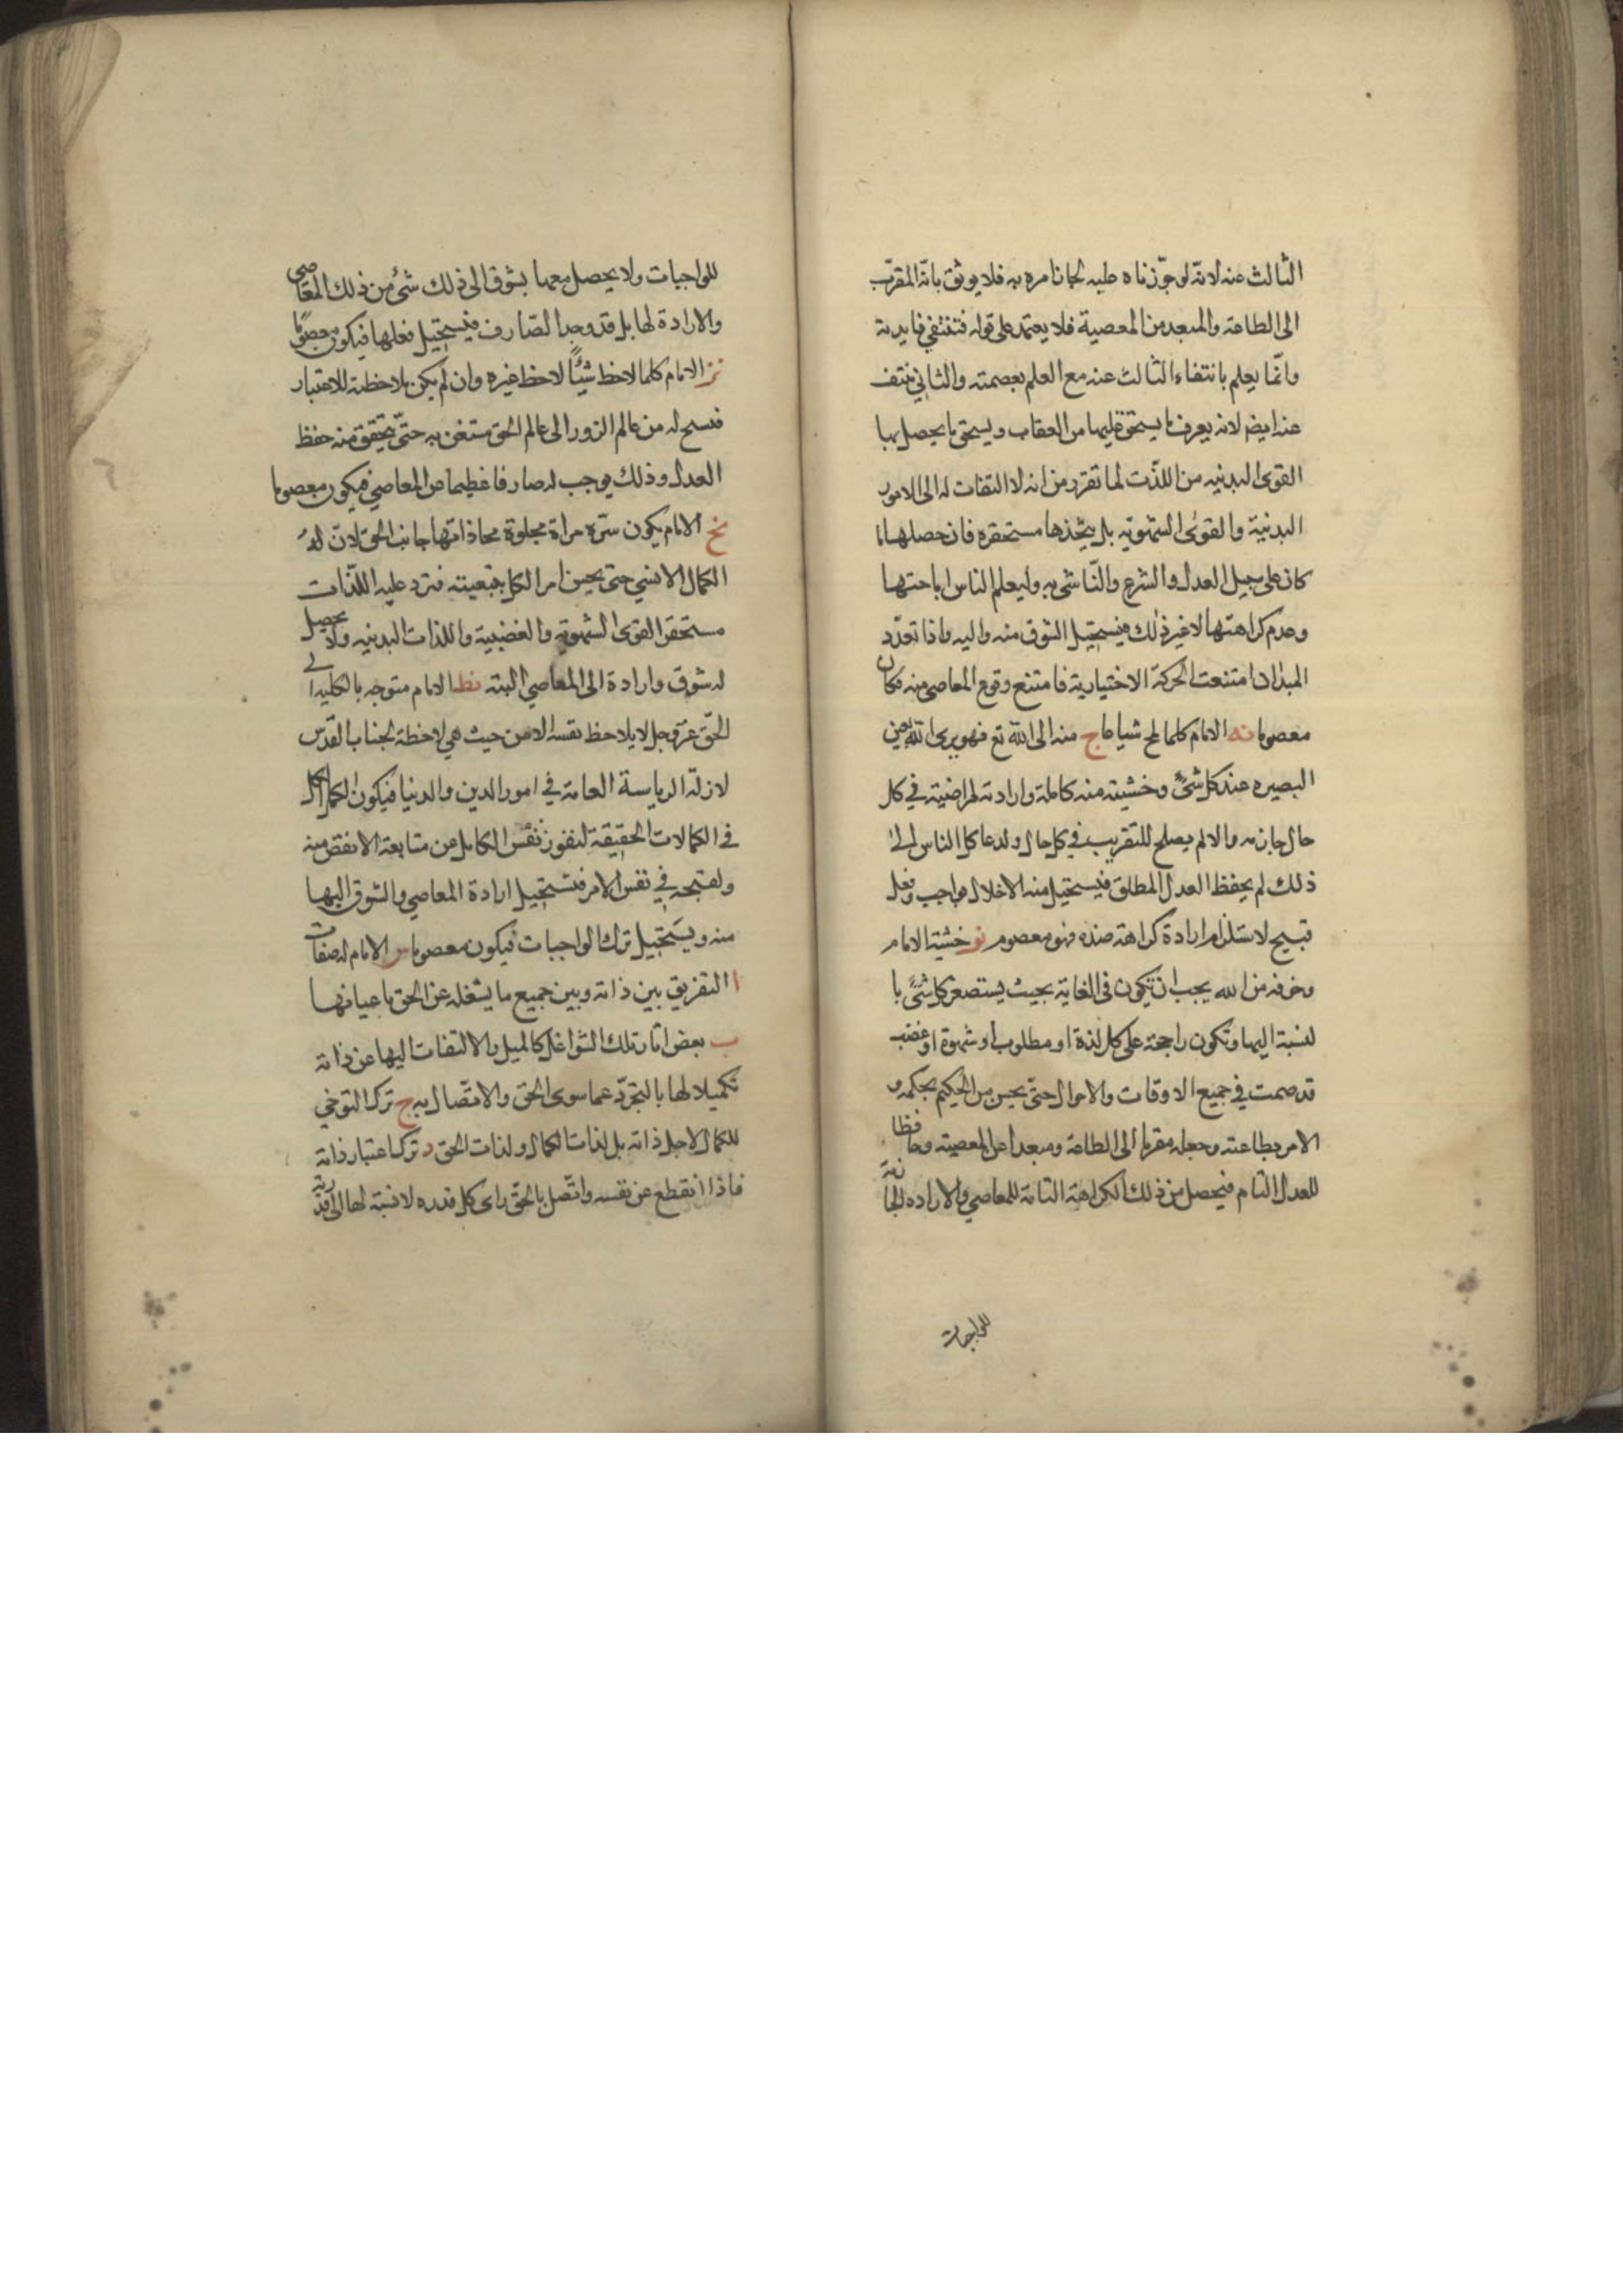 الثالث عنه لانه لو جوّزناه عليه لجاز امره به فلا يوثق بانّه المقرّب
الى الطاعة والمبعد من المعصية فلا يعتمد على قوله فتنتفي فايدته
وانّما يعلم بانتفاء الثالث عنه مع العلم بعصمته والثاني منتف
عنه ايضا لانه يعرف ما يستحق عليها من العقاب ويستحق ما يحصل بها
القوى البدنيه من اللذت لما تقرّر من انه لا التفات له الى الامور
البدنية والقوى الشهوّيه بل يتخذها مستحقره فان حصلها
كان على سبيل العدل والشرع والنّاشى به وليعلم الناس اباحتها
وعدم كراهتها لا غير ذلك فيستحيل الشوق منه واليه واذا تعدّد
المبدان امتنعت الحركة الاختيارية فامتنع وقوع المعاصي منه فكان
معصوما نه الامام كلما لمح شيا عاج منه الى الله تع فهو يرى الله بعين
البصيره عند كل شئ وخشيته منه كاملة وارادته لمراضيه في كل
حال جازمه والا لم يصلح للتقريب في كل حال ولدعا كل الناس الى
ذلك لم يحفظ العدل المطلق فيستحيل منه الاخلال بواجب وفعل
قبيح لاستلزام ارادة كراهة ضده فهو معصوم نو خشية الامام
وخوفه من الله يجب ان تكون في الغاية بحيث يستصغر كل شئ با
لنسبة اليها وتكون راجحة على كل لذة او مطلوب او شهوة او غضب
قد صمت في جميع الاوقات والاحوال حتّى يحسن من الحكيم بحكمه و
الامر بطاعته وجعله مقربا الى الطاعة ومبعدا عن المعصية وحافظا
للعدل التام فيحصل من ذلك الكراهة التامة للمعاصي والاراده الجازمة
للواجبات
للواجبات ولا يحصل معها بشوق الى ذلك شئ من ذلك المعاصي
والارادة لها بل قد وجد الصّارف فيستحيل فعلها فيكون معصومًا
نز الامام كلما لاحظ شيئًا لاحظ غيره وان لم يكن ملاحظته للاعتبار
فسنح له من عالم الزور الى عالم الحق مستغن به حتّى يتحقق منه حفظ
العدل وذلك يوجب له صارفا عظيما عن المعاصي فيكون معصوما
نح الامام يكون سرّه مراة مجلوة محاذا بها جانب الحق لانّ لهُ
الكمال الانسي حتى يحسن امر الكل بتبعيته فترد عليه اللذّات
مستحقر القوى الشهوّيه والغضبيّة واللذات البدنيه ولا يحصل
له شوق وارادة الى المعاصي البتة نط الامام متوجه بالكلية الى
الحقّ عزّ وجل لا يلاحظ نفسه الا من حيث هي لاحظة لجناب القدّس
لان له الرياسة العامة في امور الدين والدنيا فيكون اكمل الكل
في الكمالات الحقيقة لنفور نفس الكامل عن متابعة الانقص منه
ولقبحه في نفس الامر فتستحيل ارادة المعاصي والشوق اليها
منه ويستحيل ترك الواجبات فيكون معصوما س الامام له صفات
ا التفريق بين ذاته وبين جميع ما يشغله عن الحق باعيانها
ب بعض اثار تلك الشواغل كالميل والالتفات اليها عن ذاته
تكميلا لها بالتجرّد عما سوى الحق والاتصال به ج ترك التوخي
للكمال لاجل ذاته بل لذات الكمال ولذات الحق د ترك اعتبار ذاته
فاذا انقطع عن نفسه واتّصل بالحقّ راى كل قدره لا نسبة لها الى قدرته